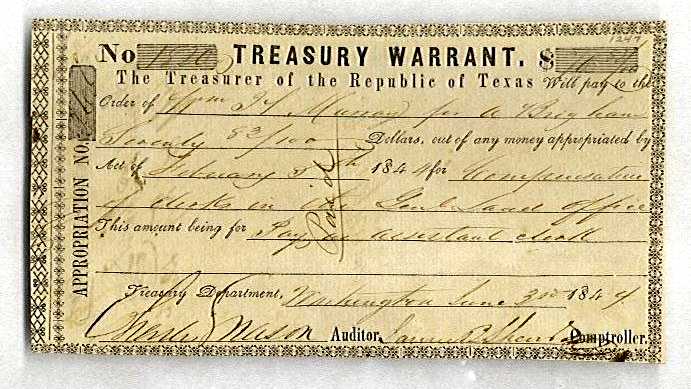 1247
No TREASURY WARRANT. $
The Treasurer of the Republic of Texas Will pay to the
Order of Wm for a
Seventy 83/100 Dollars, out of any money appropriated by
Act of February 5th 1844 for Compensation
of clerks in the Genl Land office
This amount being for Pay as assistant clerk
Treasury Department, Washington June 3rd 1844
Charles Mason Auditor, James B Shaw Comptroller.
APPROPRIATION NO.
Paid